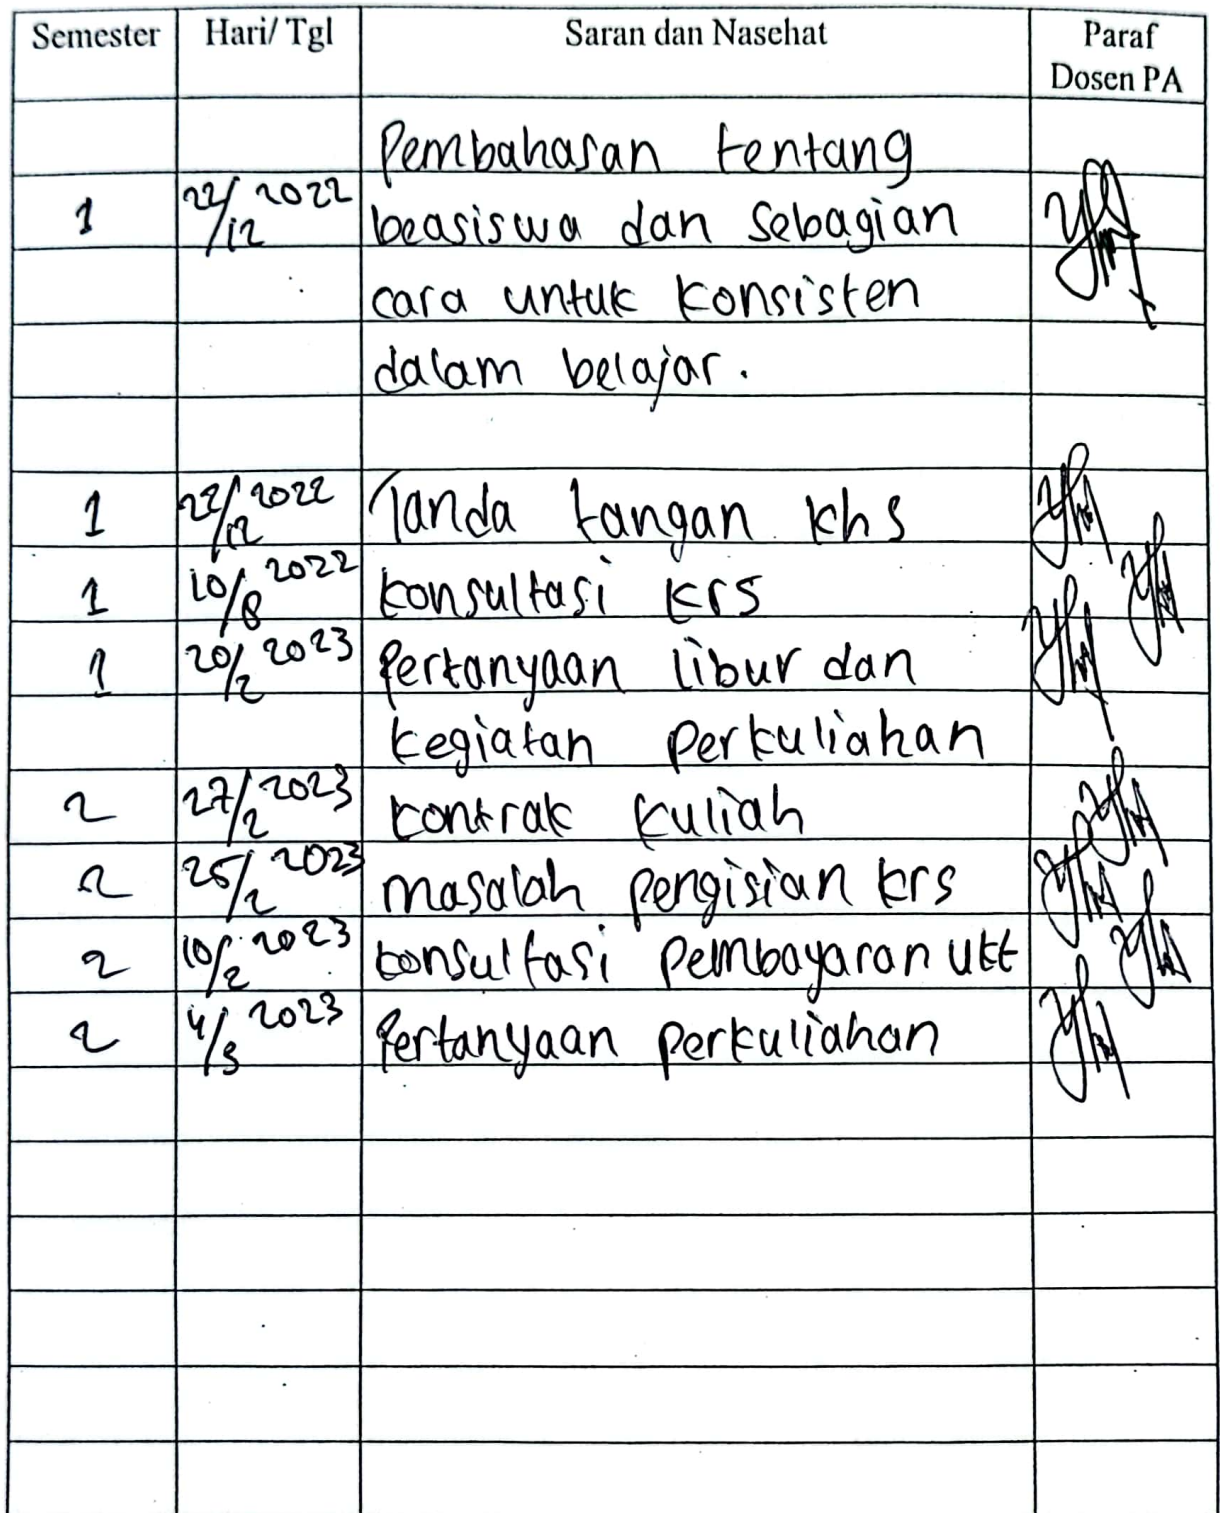 Semester Hari/ Tgl Saran dan Nasehat Paraf
Dosen PA
Pembahasan tentang
1 22/12 2022 beasiswa dan sebagian
cara untuk konsisten
dalam belajar.
1 22/12 2022 Tanda tangan khs
1 10/8 2022 konsultasi krs
1 20/2 2023 Pertanyaan libur dan
kegiatan perkuliahan
2 27/2 2023 kontrak kuliah
2 25/2 2023 masalah pengisian krs
2 10/2 2023 konsultasi pembayaran ukt
2 4/3 2023 Pertanyaan perkuliahan